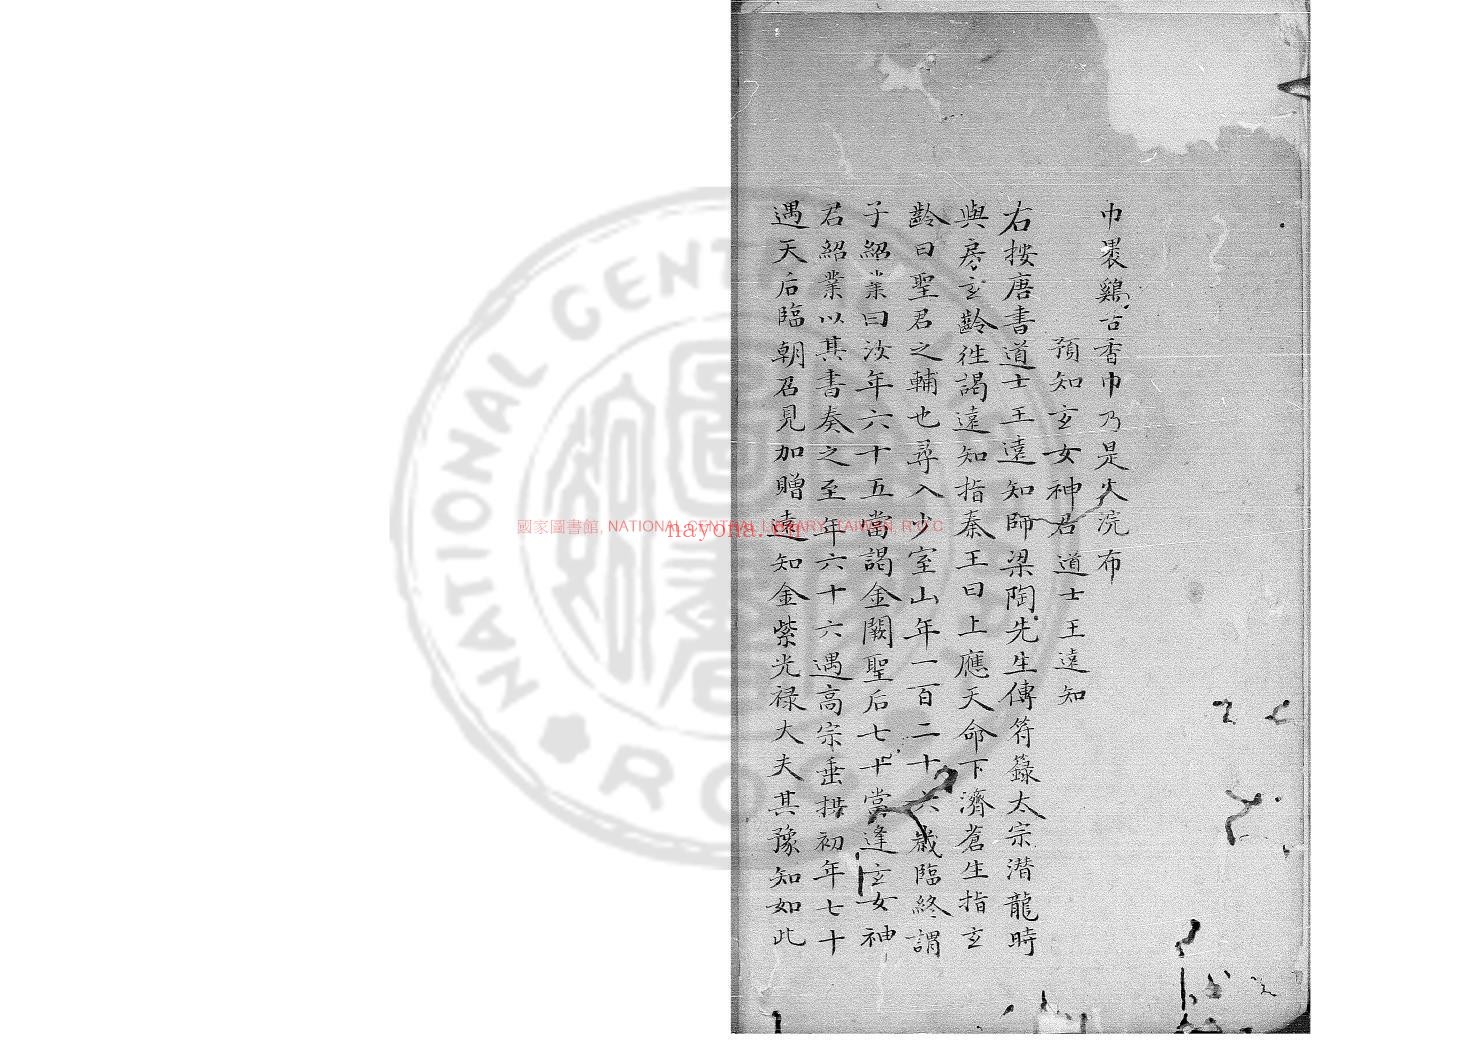 巾裹鷄舌香巾乃是火浣布
預知玄女神君道士王遠知
右按唐書道士王遠知師梁陶先生傳符籙太宗潛龍時
與房玄齡徃謁遠知指秦王曰上應天命下濟蒼生指玄
齡曰聖君之輔也尋入少室山年一百二十六歲臨終謂
子紹業曰汝年六十五當謁金闕聖后七十當逢玄女神
君紹業以其書奏之至年六十六遇高宗垂拱初年七十
遇天后臨朝召見加贈遠知金紫光祿大夫其豫知如此
國家圖書館, NATIONAL CENTRAL LIBRARY, TAIWAN, R.O.C
NATIONAL CENTRAL
ROC